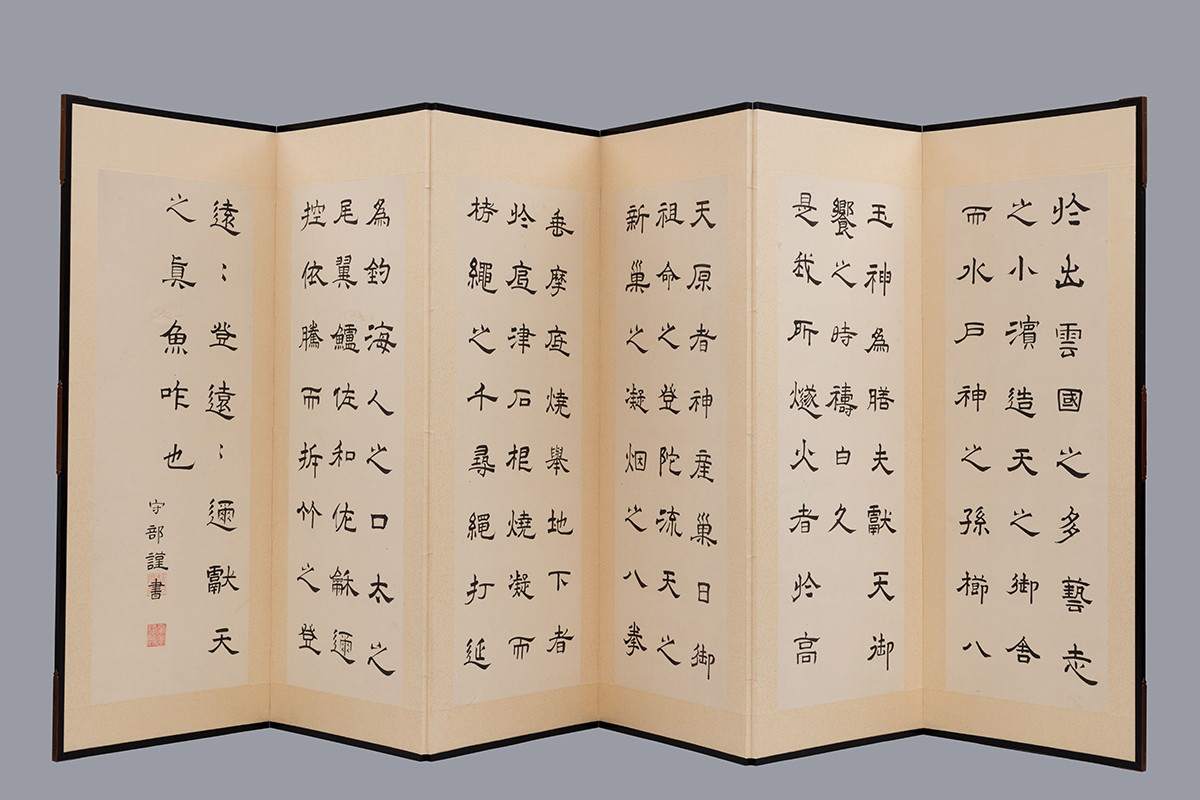 於出雲國之多藝志
之小濱造天之御舍
而水戶神之孫櫛八
玉神為膳夫獻天御
饗之時禱白久
是我所燧火者於高
天原者神產巢日御
祖命之登陀流天之
新巢之凝烟之八拳
垂摩底燒舉地下者
於底津石根燒凝而
栲繩之千尋繩打延
為釣海人之口太之
尾翼鱸佐和佐龢邇
控依騰而拆竹之登
遠〻登遠〻邇獻天
之眞魚咋也
守部謹書